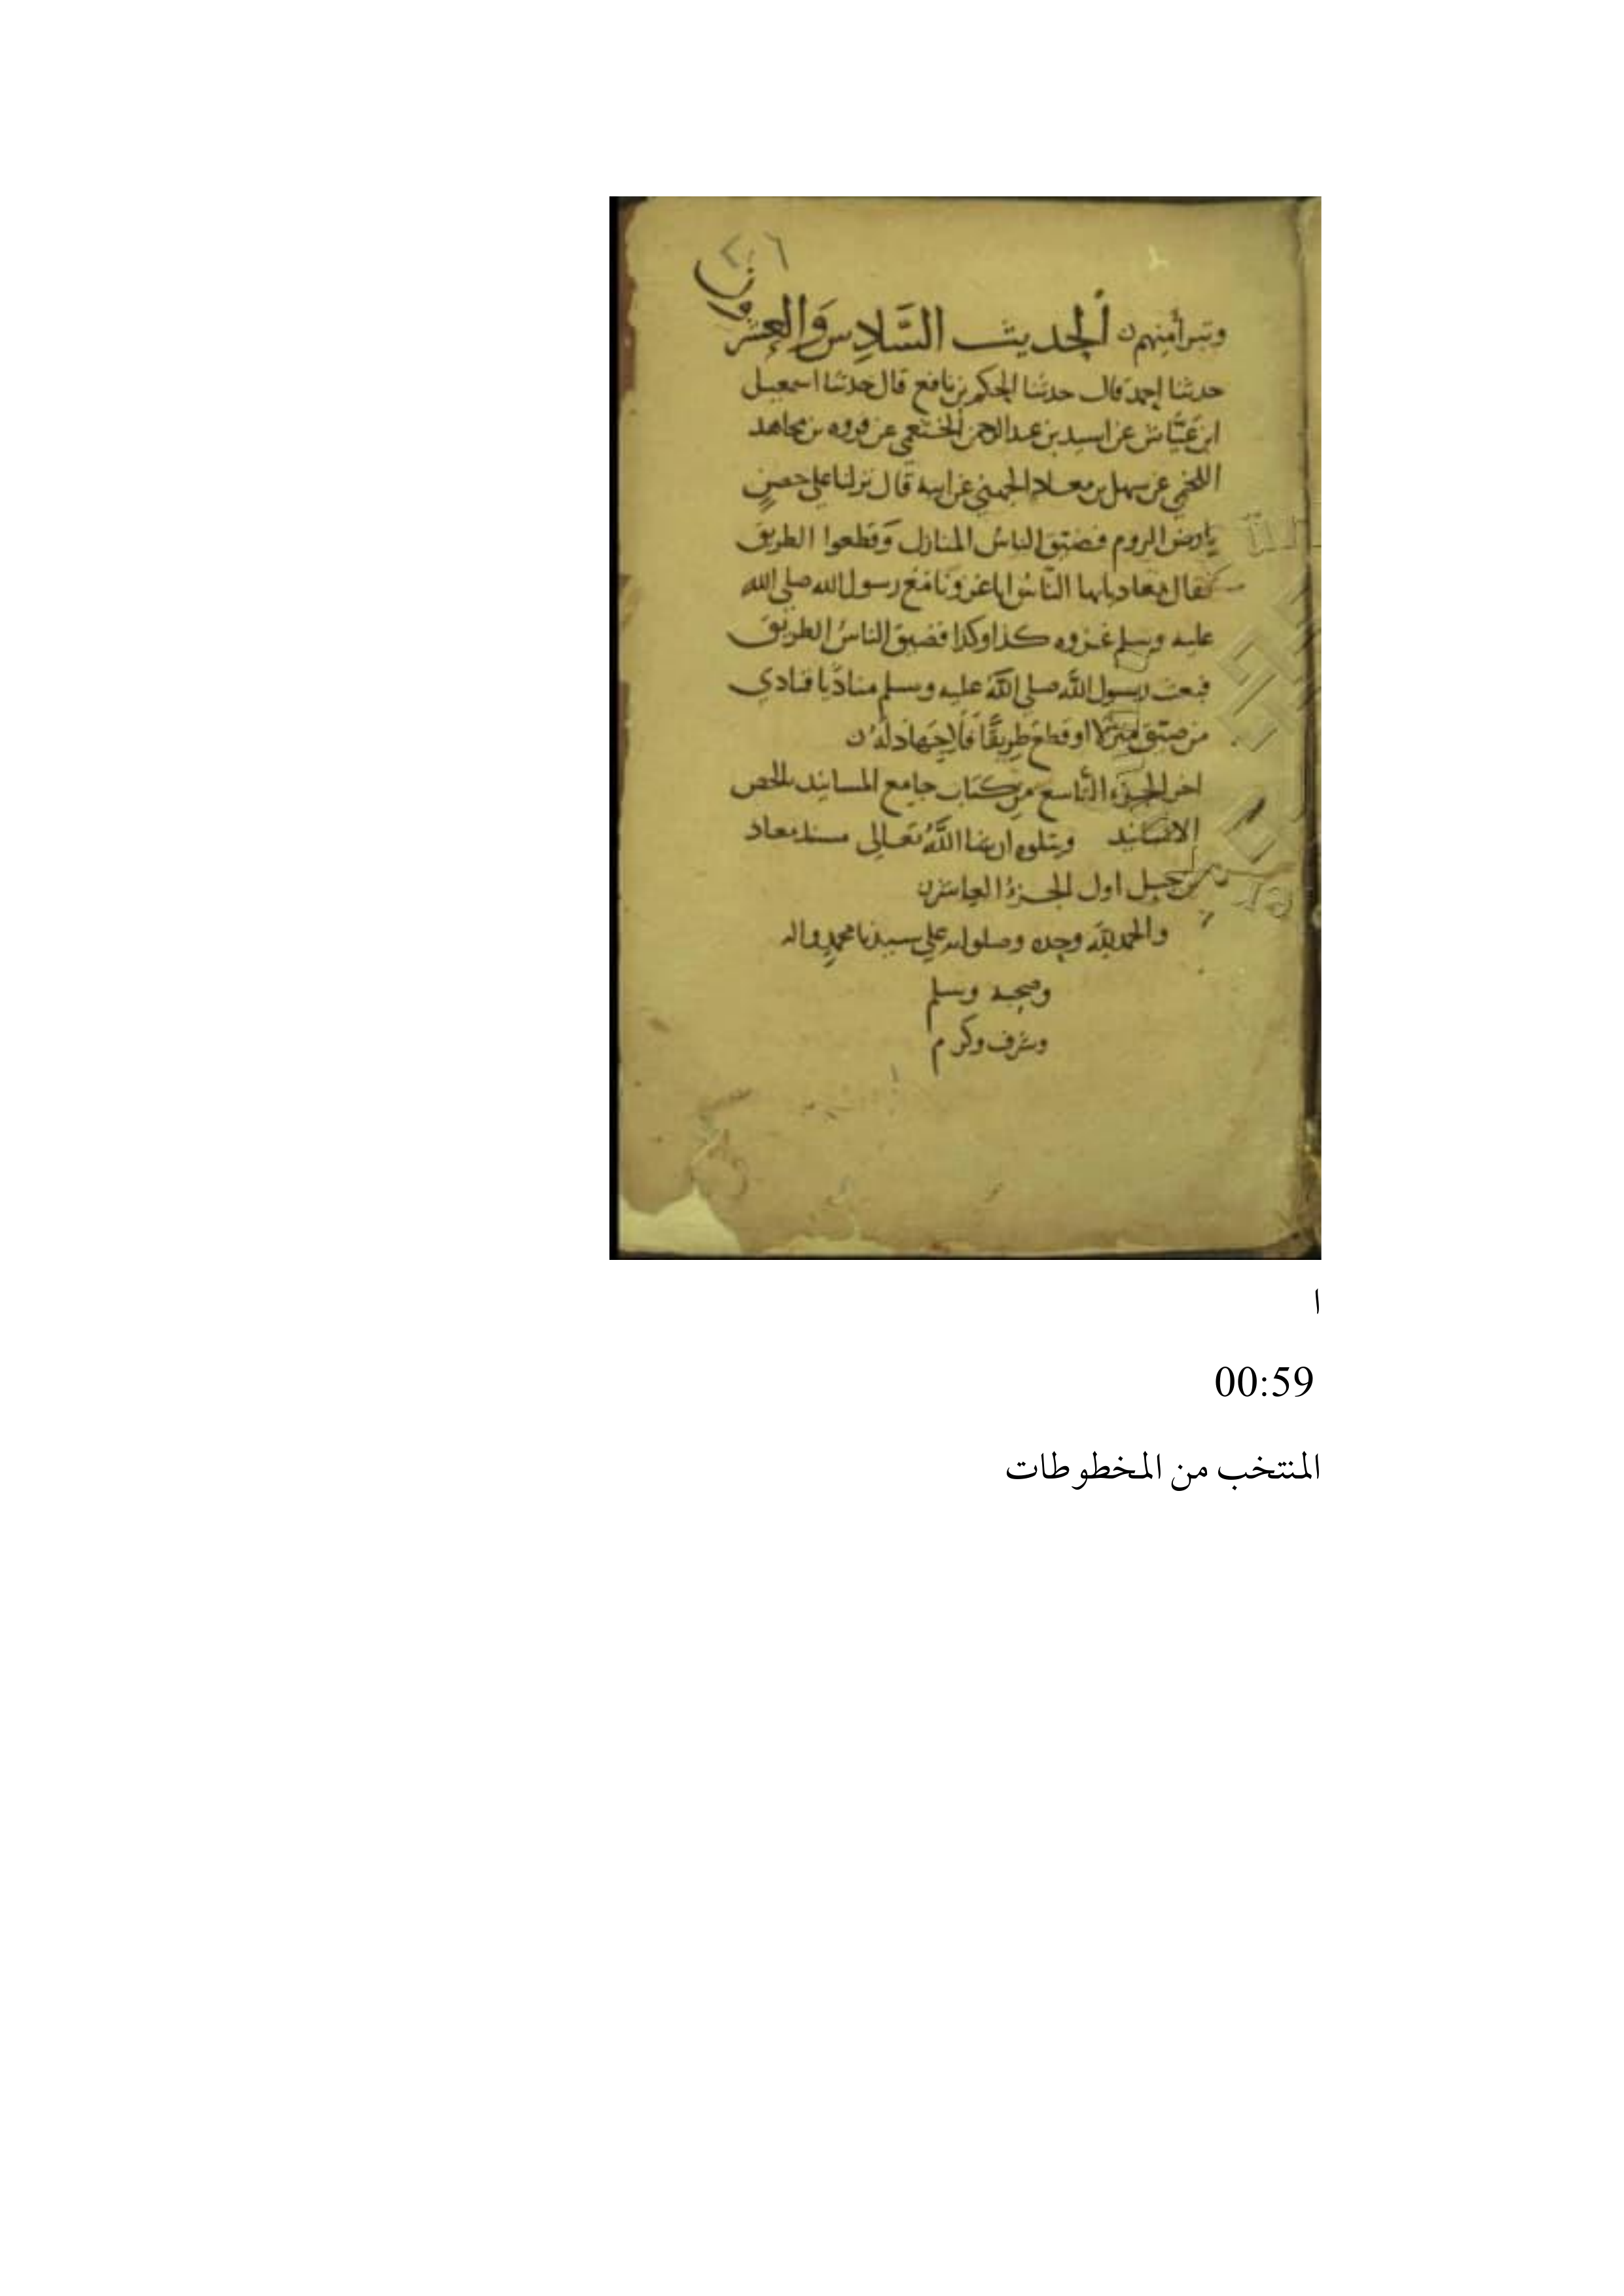 ٢٦
وتبرأ منهم ن الحديث السَّادِس وَالعِشرون
حدثنا احمد قال حدثنا الحكم بن نافع قال حدثنا اسمعيل
ابن عَيَّاش عن اسيد بن عبد الرحمن الخثعمي عن فروه بن مجاهد
اللخمي عن سهل بن معاد الجهني عن ابيه قال نزلنا علي حصنٍ
بارض الروم فضيّق الناسُ المنازل وقطعوا الطريق
فقال معاد يايها النّاس انا غزونا مع رسول الله صلى الله
عليه وسلم غزوه كذا وكذا فضيق الناسُ الطريق
فبعث رسول الله صلى الله عليه وسلم مناديًا فنادي
من ضيّق منزلًا او قطع طريقًا فلا جهاد لهُ ن
اخر الجزء التّاسع من كتاب جامع المسانيد بالخص
الاسانيد ويتلوه ان شا اللهُ تعالى مسند معاد
بن جبل اول الجزءُ العاشر ن
والحمد لله وحده وصلواته علي سيدنا محمدٍ واله
وصحبه وسلم
وشرف وكرم
ا
00:59
المنتخب من المخطوطات